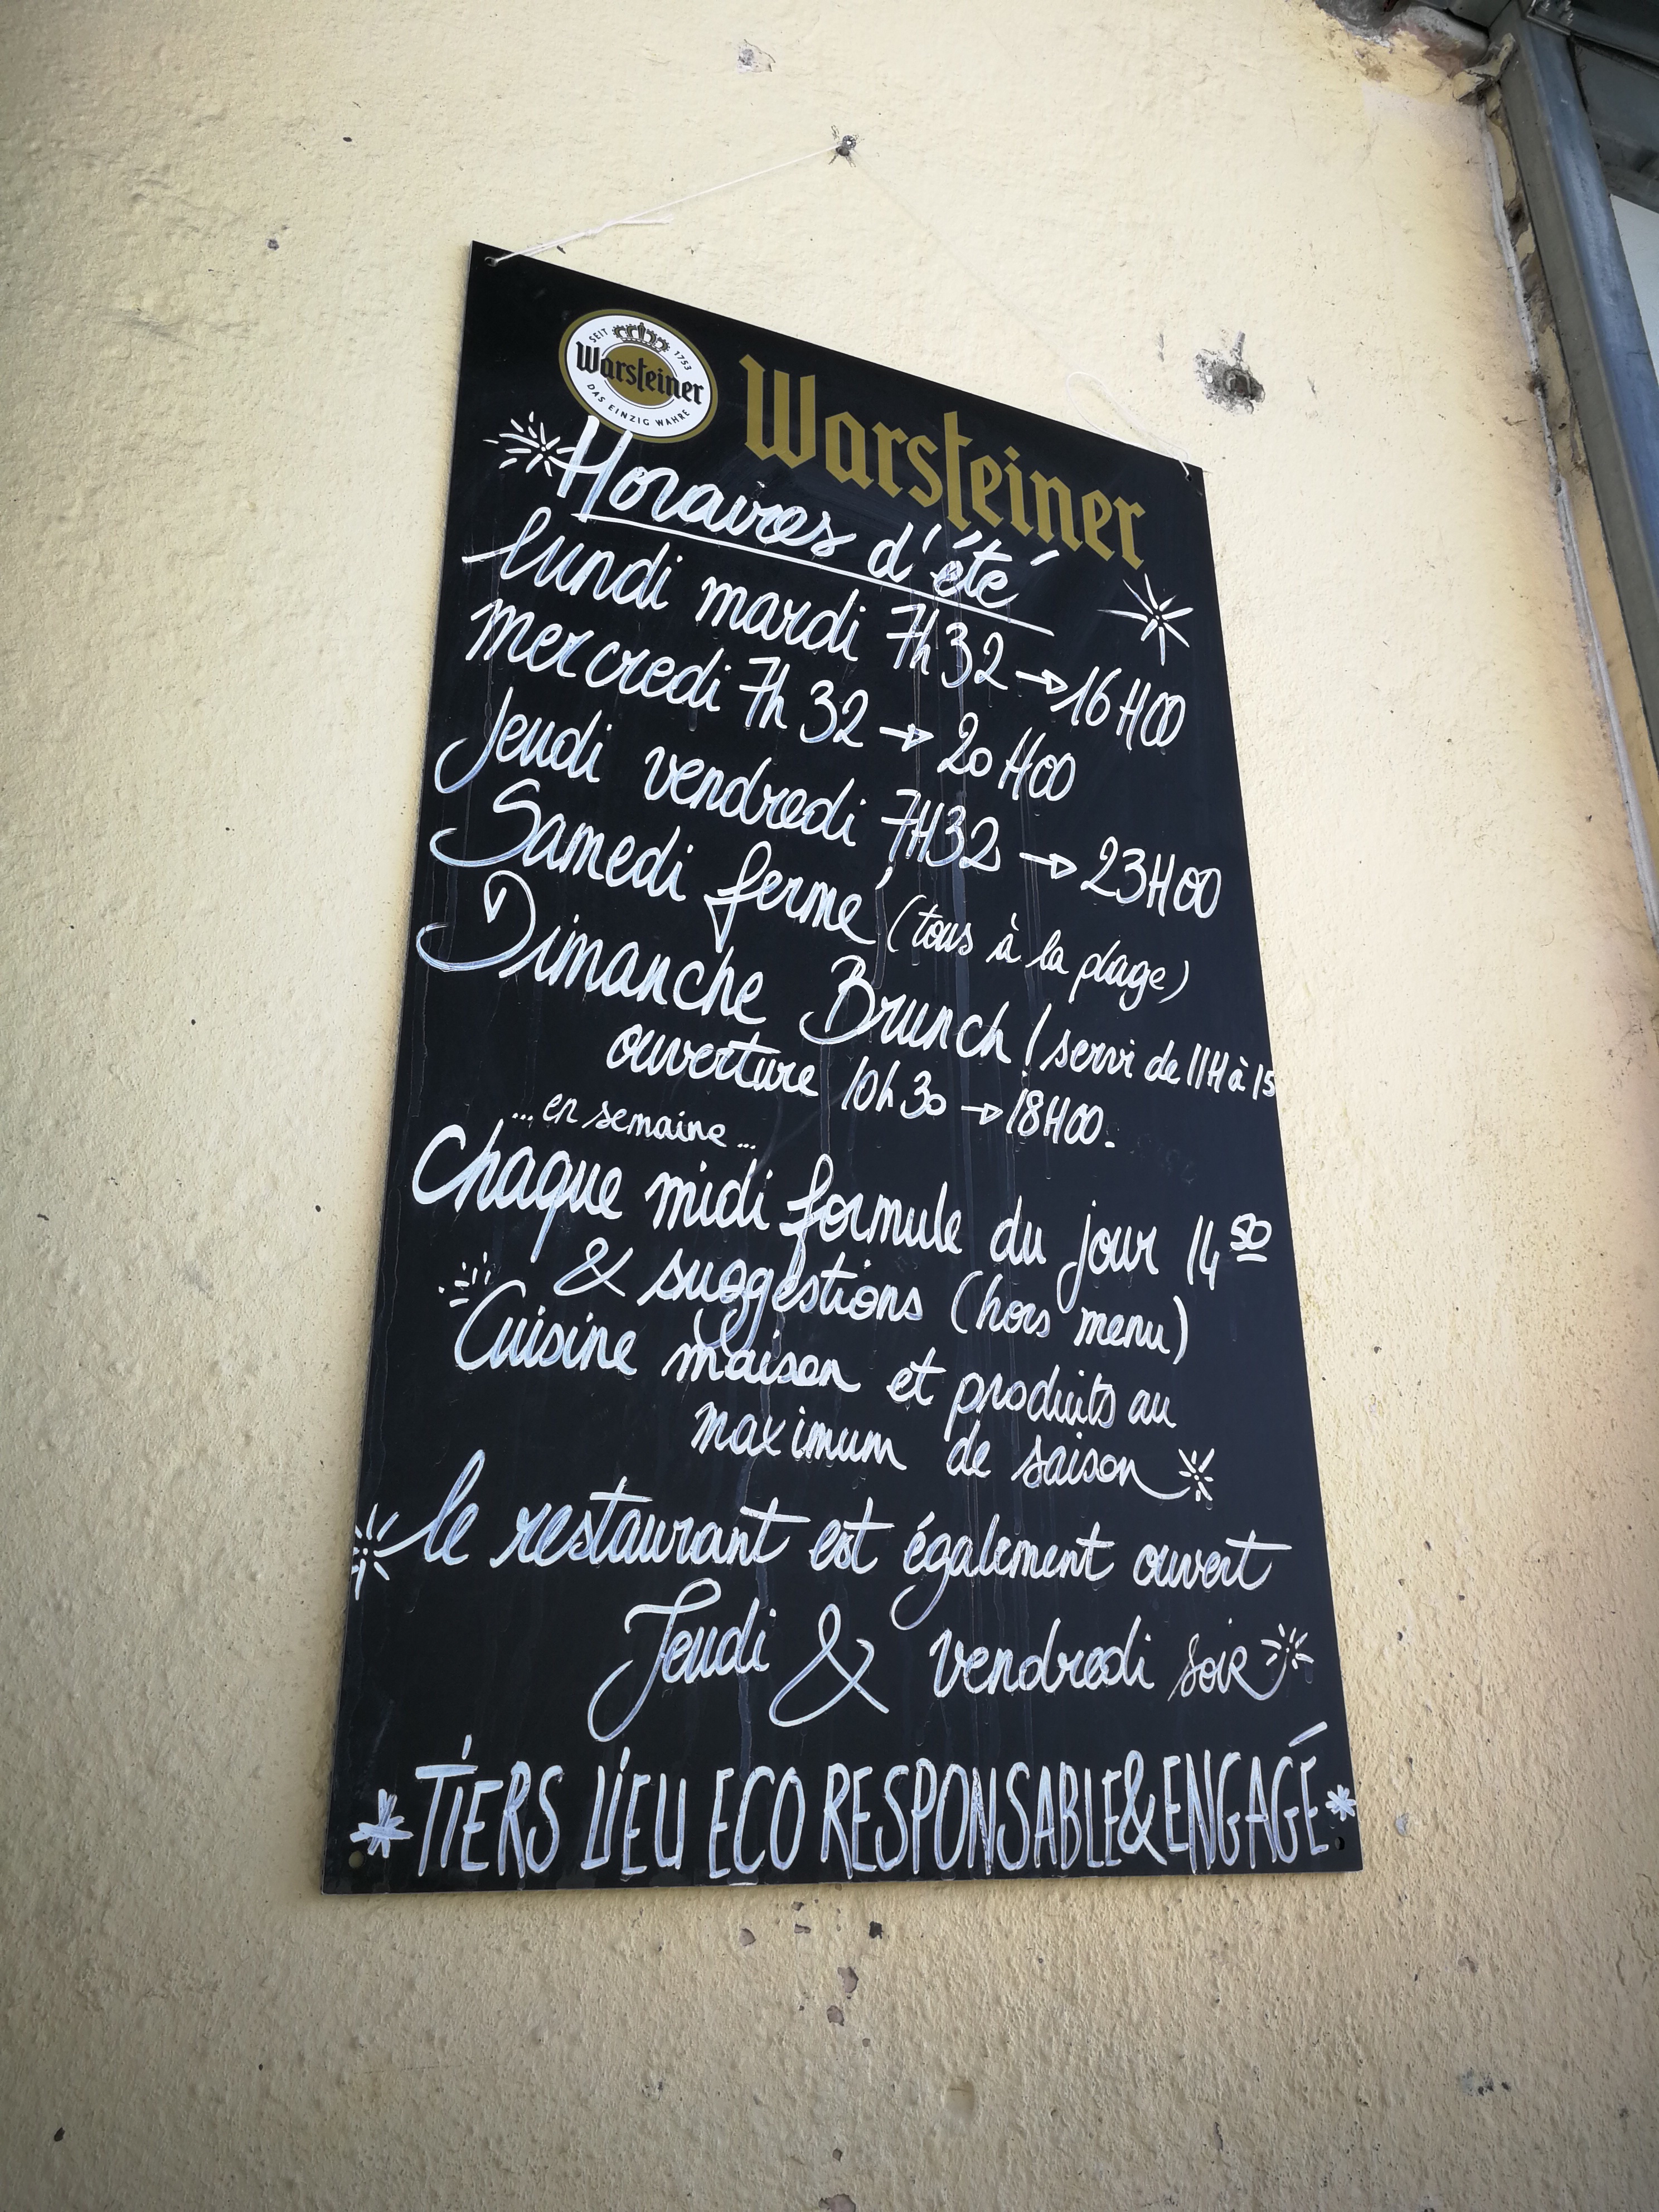 SEIT 1753
Warsteiner
DAS EINZIG WAHRE
Warsteiner
Horaires d'été
lundi mardi 7h32 → 16H00
mercredi 7h32 → 20H00
Jeudi vendredi 7H32 → 23H00
Samedi fermé (tous à la plage)
Dimanche Brunch ! servi de 11H à 15
ouverture 10h30 → 18H00.
... en semaine ...
Chaque midi formule du jour 14 50
& suggestions (hors menu)
Cuisine maison et produits au
maximum de saison
le restaurant est également ouvert
Jeudi & vendredi soir
* TIERS LIEU ECO RESPONSABLE & ENGAGÉ *